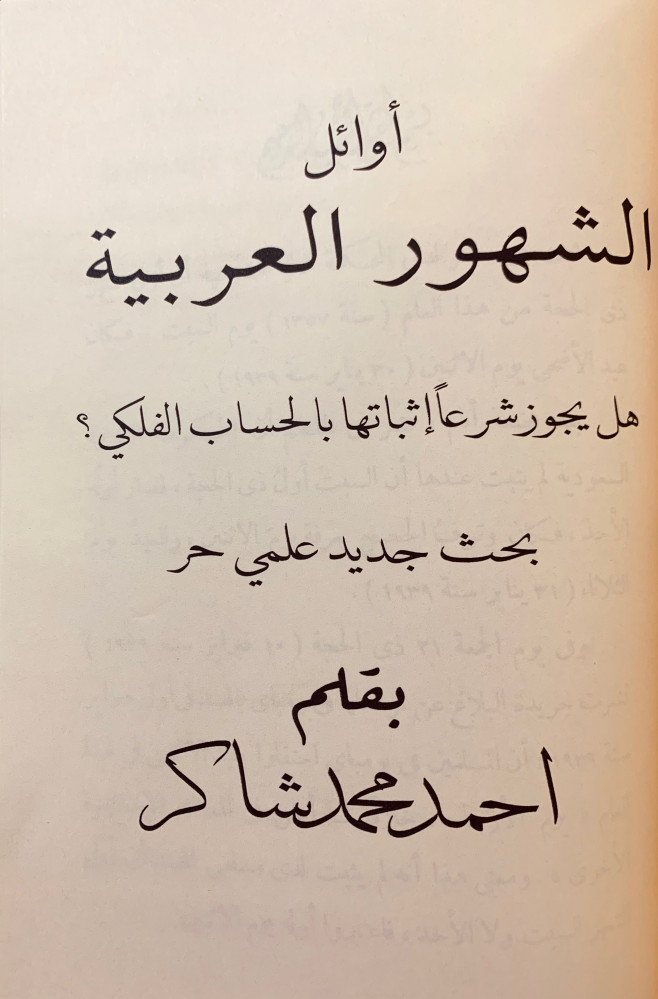 أوائل
الشهور العربية
هل يجوز شرعاً إثباتها بالحساب الفلكي ؟
بحث جديد علمي حر
بقلم
احمد محمد شاكر